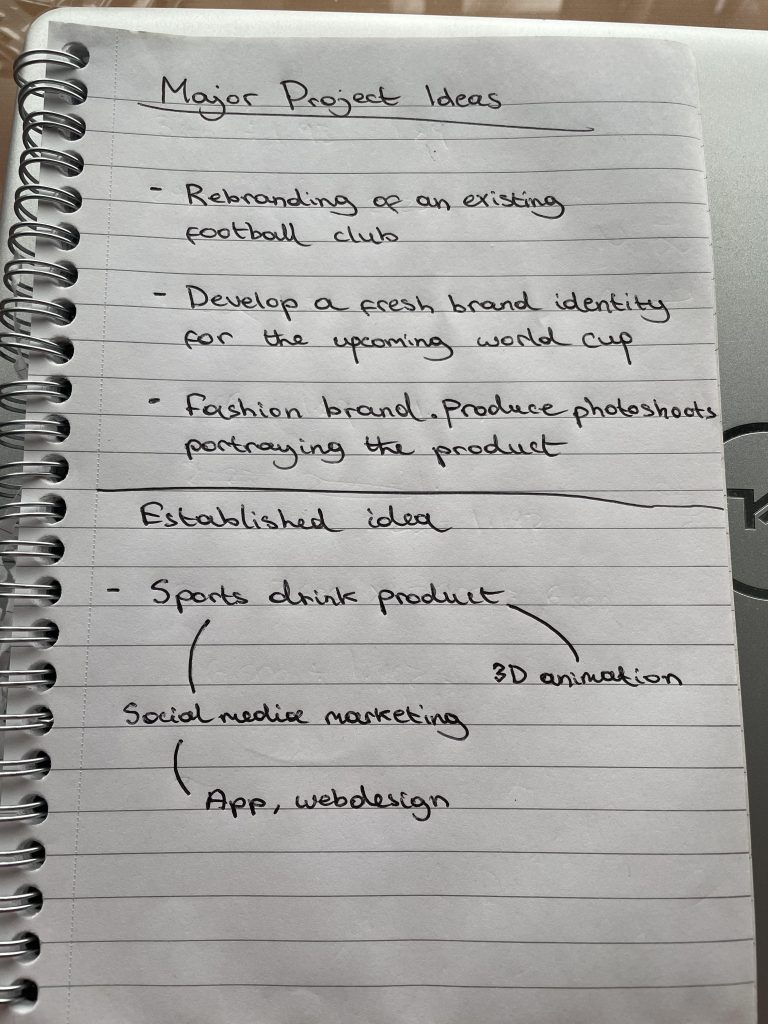 Major Project Ideas
- Rebranding of an existing
football club
- Develop a fresh brand identity
for the upcoming world cup
- Fashion brand. Produce photoshoots
portraying the product
Established idea
- Sports drink product
3D animation
Social media marketing
App, webdesign